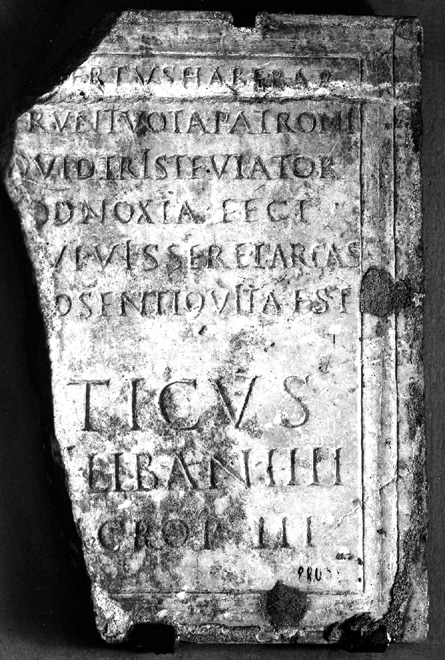 ERTVS HABEBAR
RVENT VOTA PATRONI
QVID TRISTE VIATOR
OD NOXIA FECI
VI VISSERE PARCAS
OSENTI QVITA EST
TICVS
LIBAN IIII
CROP III
PRO